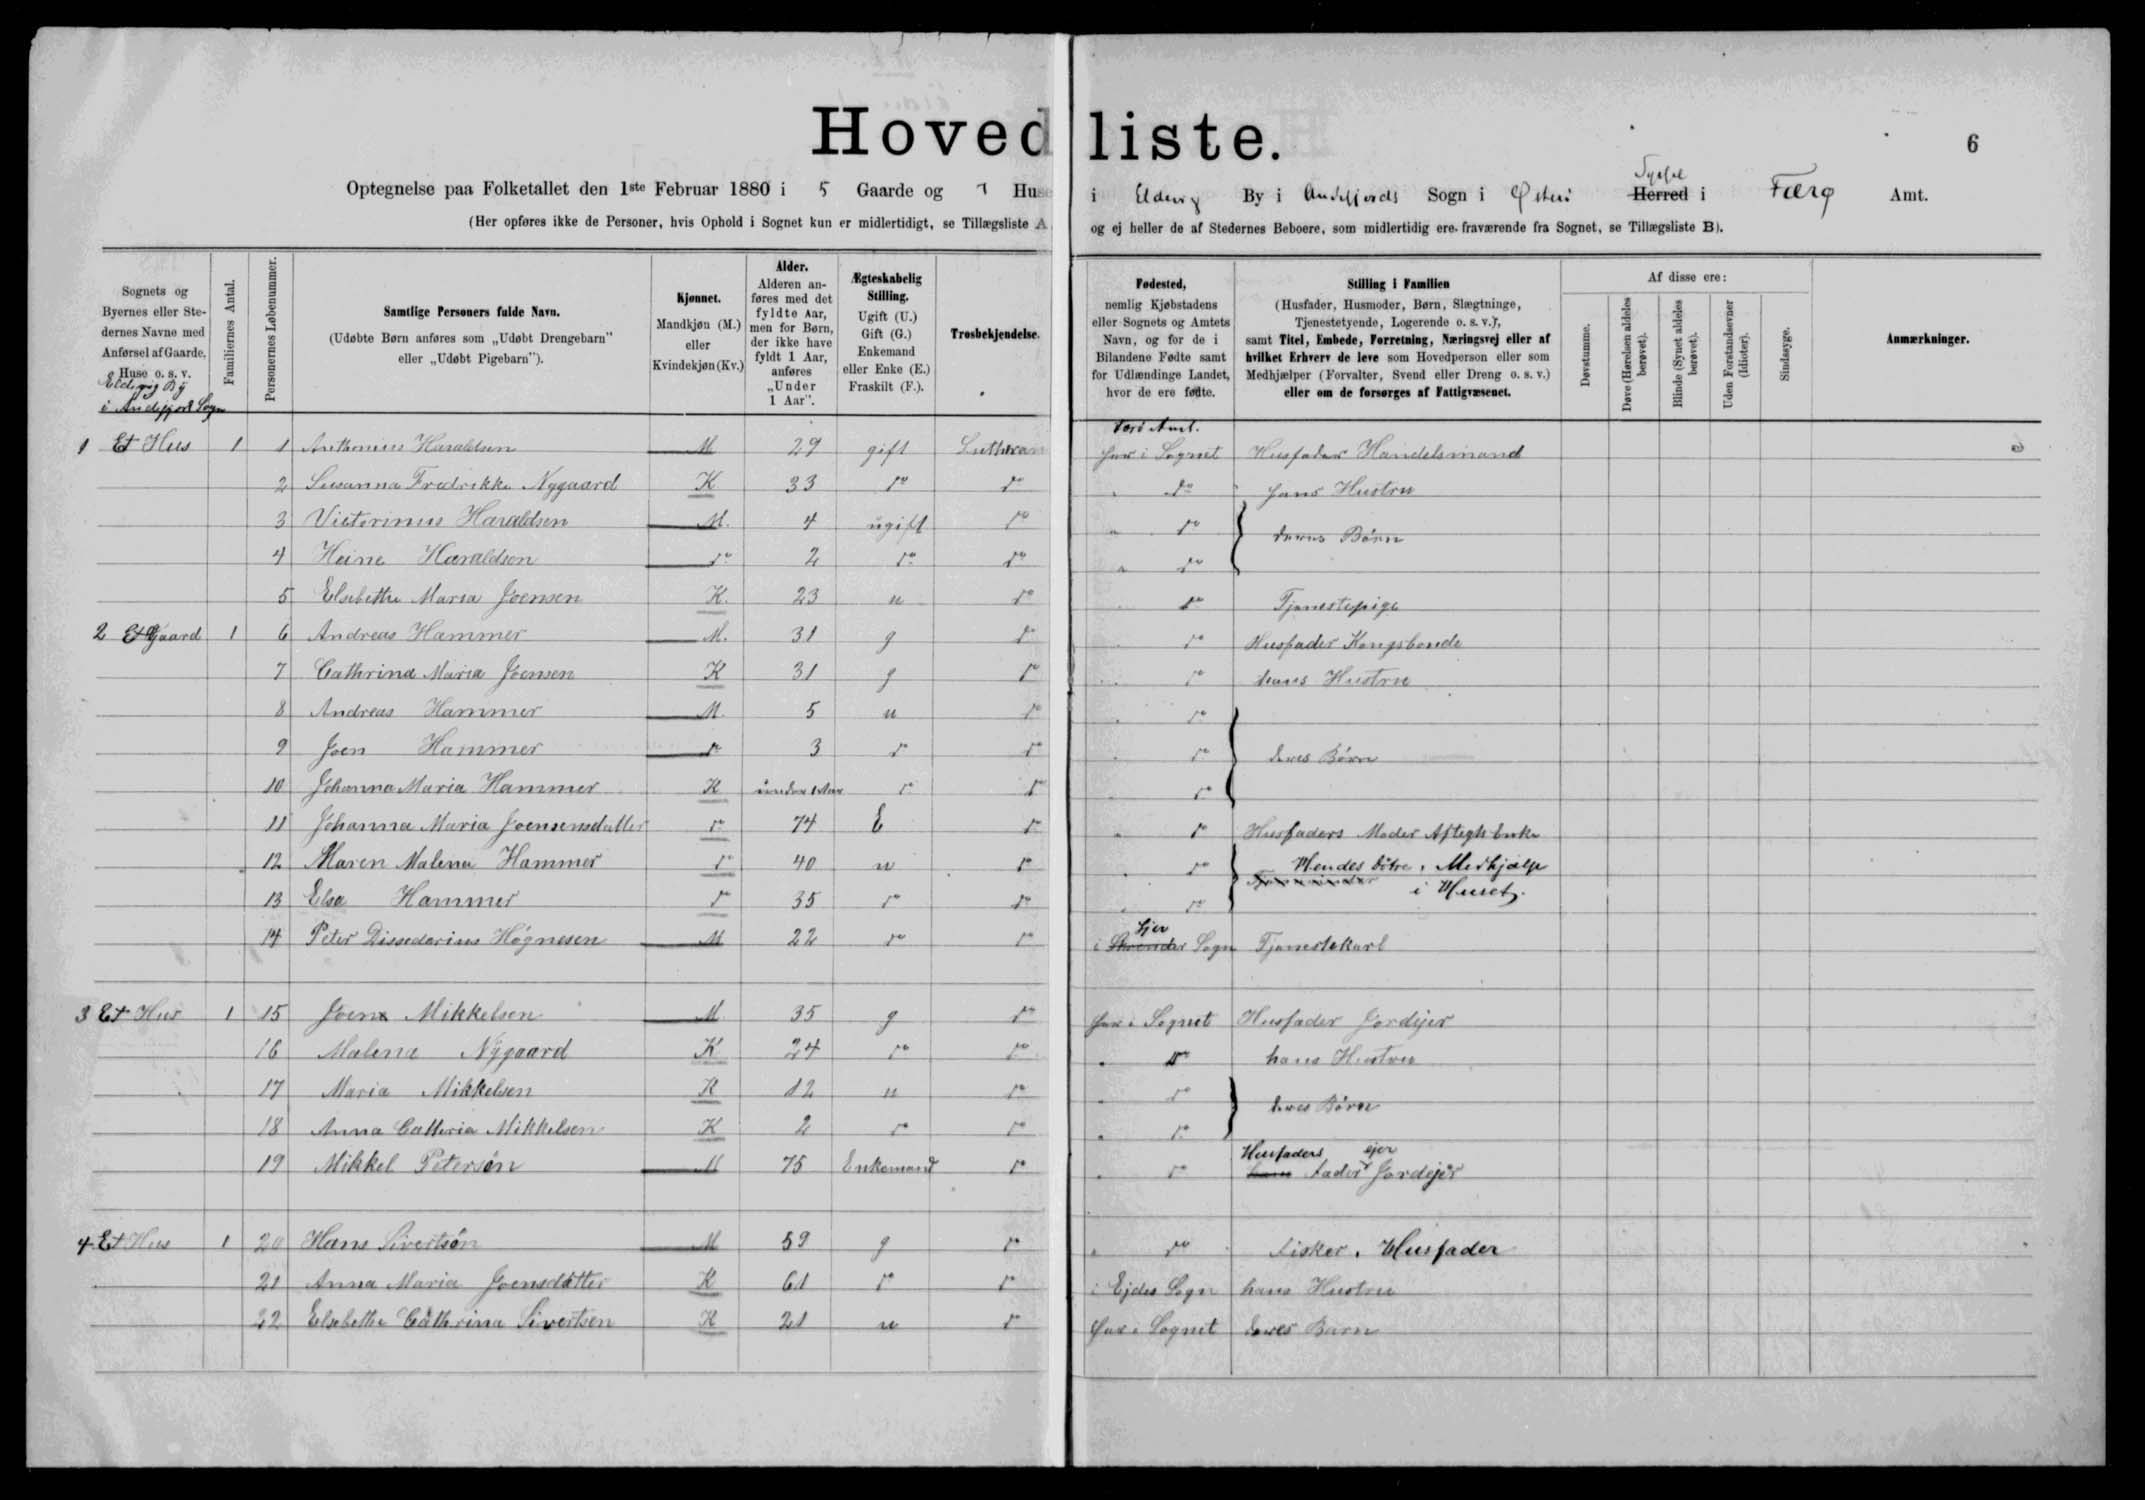 Hovedliste.
6
Optegnelse paa Folketallet den 1ste Februar 1880 i 5 Gaarde og 7 Huse i Eldevig By i Andefjords Sogn i Østerø Syssel Herred i Færø Amt.
(Her opføres ikke de Personer, hvis Ophold i Sognet kun er midlertidigt, se Tillægsliste A og ej heller de af Stedernes Beboere, som midlertidig ere fraværende fra Sognet, se Tillægsliste B).
Sognets og Byernes eller Stedernes Navne med Anførsel af Gaarde, Huse o. s. v.
Familiernes Antal.
Personernes Løbenummer.
Samtlige Personers fulde Navn. (Udøbte Børn anføres som „Udøbt Drengebarn" eller „Udøbt Pigebarn").
Kjønnet. Mandkjøn (M.) eller Kvindekjøn (Kv.)
Alder. Alderen anføres med det fyldte Aar, men for Børn, der ikke have fyldt 1 Aar, anføres „Under 1 Aar".
Ægteskabelig Stilling. Ugift (U.) Gift (G.) Enkemand eller Enke (E.) Fraskilt (F.).
Trosbekjendelse.
Fødested, nemlig Kjøbstadens eller Sognets og Amtets Navn, og for de i Bilandene Fødte samt for Udlændinge Landet, hvor de ere fødte.
Stilling i Familien (Husfader, Husmoder, Børn, Slægtninge, Tjenestetyende, Logerende o. s. v.), samt Titel, Embede, Forretning, Næringsvej eller af hvilket Erhverv de leve som Hovedperson eller som Medhjælper (Forvalter, Svend eller Dreng o. s. v.) eller om de forsørges af Fattigvæsenet.
Af disse ere:
Døvstumme.
Døve (Hørelsen aldeles berøvet).
Blinde (Synet aldeles berøvet).
Uden Forstandsevner (Idioter).
Sindssyge.
Anmærkninger.
Eldevig By
i Andefjord Sogn
Færø Amt.
1 Et Hus 1 1 Anthonius Haraldsen M 29 gift Lutheran her i Sognet Husfader Handelsmand
2 Susanna Fredrikke Nygaard K 33 do do do hans Hustru
3 Victorinus Haraldsen M. 4 ugift do do deres Børn
4 Heine Haraldsen do 2 do do do
5 Elsebethe Maria Joensen K. 23 u do do Tjenestepige
2 Et Gaard 1 6 Andreas Hammer M. 31 g do do Husfader Kongsbonde
7 Cathrina Maria Joensen K 31 g do do hans Hustru
8 Andreas Hammer M. 5 u do do
9 Joen Hammer do 3 do do do deres Børn
10 Johanna Maria Hammer K under 1 Aar do do do
11 Johanna Maria Joensensdatter do 74 E do do Husfaders Moder Aftegts Enke
12 Maren Malena Hammer do 40 u do do Hendes Døtre, Medhjælp
13 Elsa Hammer do 35 do do do i Huset.
14 Peter Dissedarius Høgnesen M 22 do do i Sogn Tjenestekarl
3 Et Hus 1 15 Joen Mikkelsen M 35 g do her i Sognet Husfader Jordejer
16 Malena Nygaard K 24 do do do hans Hustru
17 Maria Mikkelsen K 12 u do do deres Børn
18 Anna Catteria Mikkelsen K 2 do do do
19 Mikkel Petersøn M 75 Enkemand do do Husfaders Fader Jordejer
4 Et Hus 1 20 Hans Sivertsøn M 59 g do do Fisker, Husfader
21 Anna Maria Joensdatter K 61 do do i Ejdes Sogn hans Hustru
22 Elsebethe Cathrina Sivertsen K 21 u do her i Sognet deres Barn